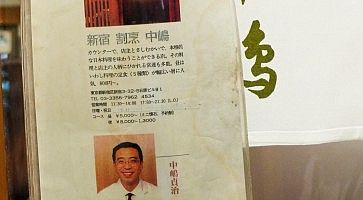 新宿 割烹 中嶋
カウンターで、店主とさしむかいで、本格的
な日本料理を味わうことができる店。その料
理と店主の人柄にひかれる常連も多数。昼は
いわし料理の定食(5種類)が幅広い層に人
気。800円〜。
東京都新宿区新宿3-32-5日原ビルB1
TEL・03-3356-7962 4534
営業時間 11:30〜14:00 17:30〜21:30(L.O.)
日曜・祝日
コース 昼 ¥5,000〜(ミニ懐石、予約制)
夜 ¥8,000〜13,000
中嶋貞治